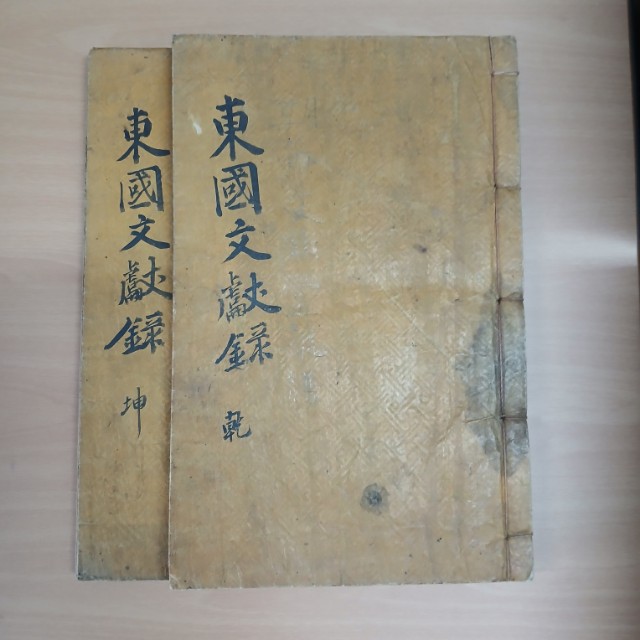 東國文獻錄 乾
東國文獻錄 坤